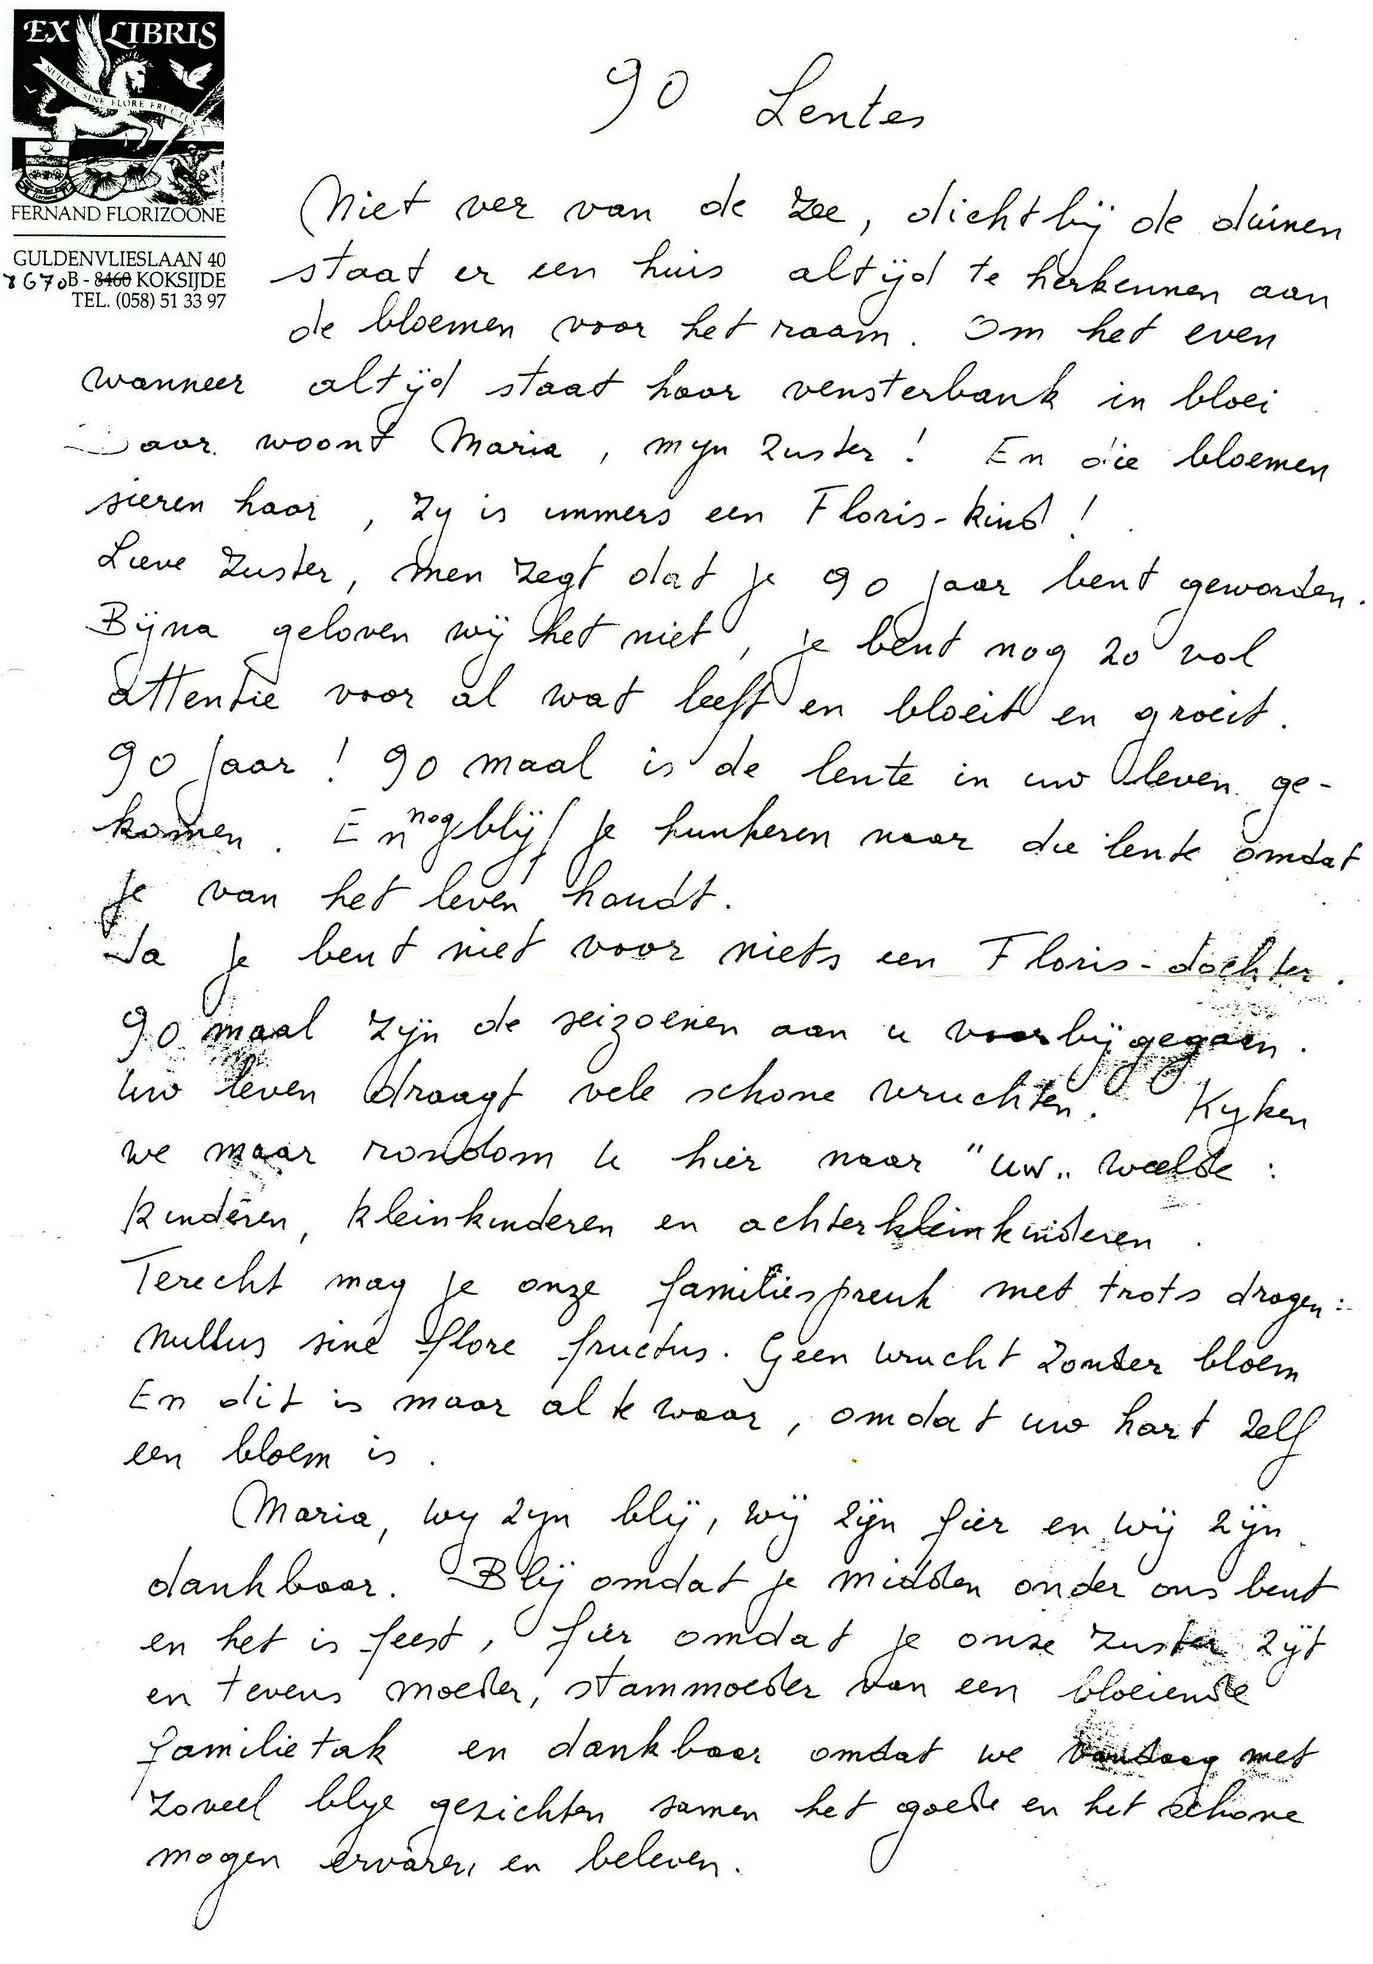 EX LIBRIS
NULLUS SINE FLORE FRUCTUS
FERNAND FLORIZOONE
GULDENVLIESLAAN 40
8670 B - 8460 KOKSIJDE
TEL. (058) 51 33 97
90 Lentes
Niet ver van de zee, dichtbij de duinen
staat er een huis altijd te herkennen aan
de bloemen voor het raam. Om het even
wanneer altijd staat haar vensterbank in bloei
Daar woont Maria, mijn zuster! En die bloemen
sieren haar, zij is immers een Floris-kind!
Lieve zuster, men zegt dat je 90 jaar bent geworden.
Bijna geloven wij het niet, je bent nog zo vol
attentie voor al wat leeft en bloeit en groeit.
90 jaar! 90 maal is de lente in uw leven ge-
komen. En nog blijf je hunkeren naar die lente omdat
je van het leven houdt.
Ja je bent niet voor niets een Floris-dochter.
90 maal zijn de seizoenen aan u voorbijgegaan.
Uw leven draagt vele schone vruchten. Kijken
we maar rondom u hier naar "uw" weelde:
kinderen, kleinkinderen en achterkleinkinderen.
Terecht mag je onze familiespreuk met trots dragen:
Nullus sine flore fructus. Geen vrucht zonder bloem
En dit is maar al te waar, omdat uw hart zelf
een bloem is.
Maria, wij zijn blij, wij zijn fier en wij zijn
dankbaar. Blij omdat je midden onder ons bent
en het is feest, fier omdat je onze zuster zijt
en tevens moeder, stammoeder van een bloeiende
familietak en dankbaar omdat we vandaag met
zoveel blije gezichten samen het goede en het schone
mogen ervaren en beleven.